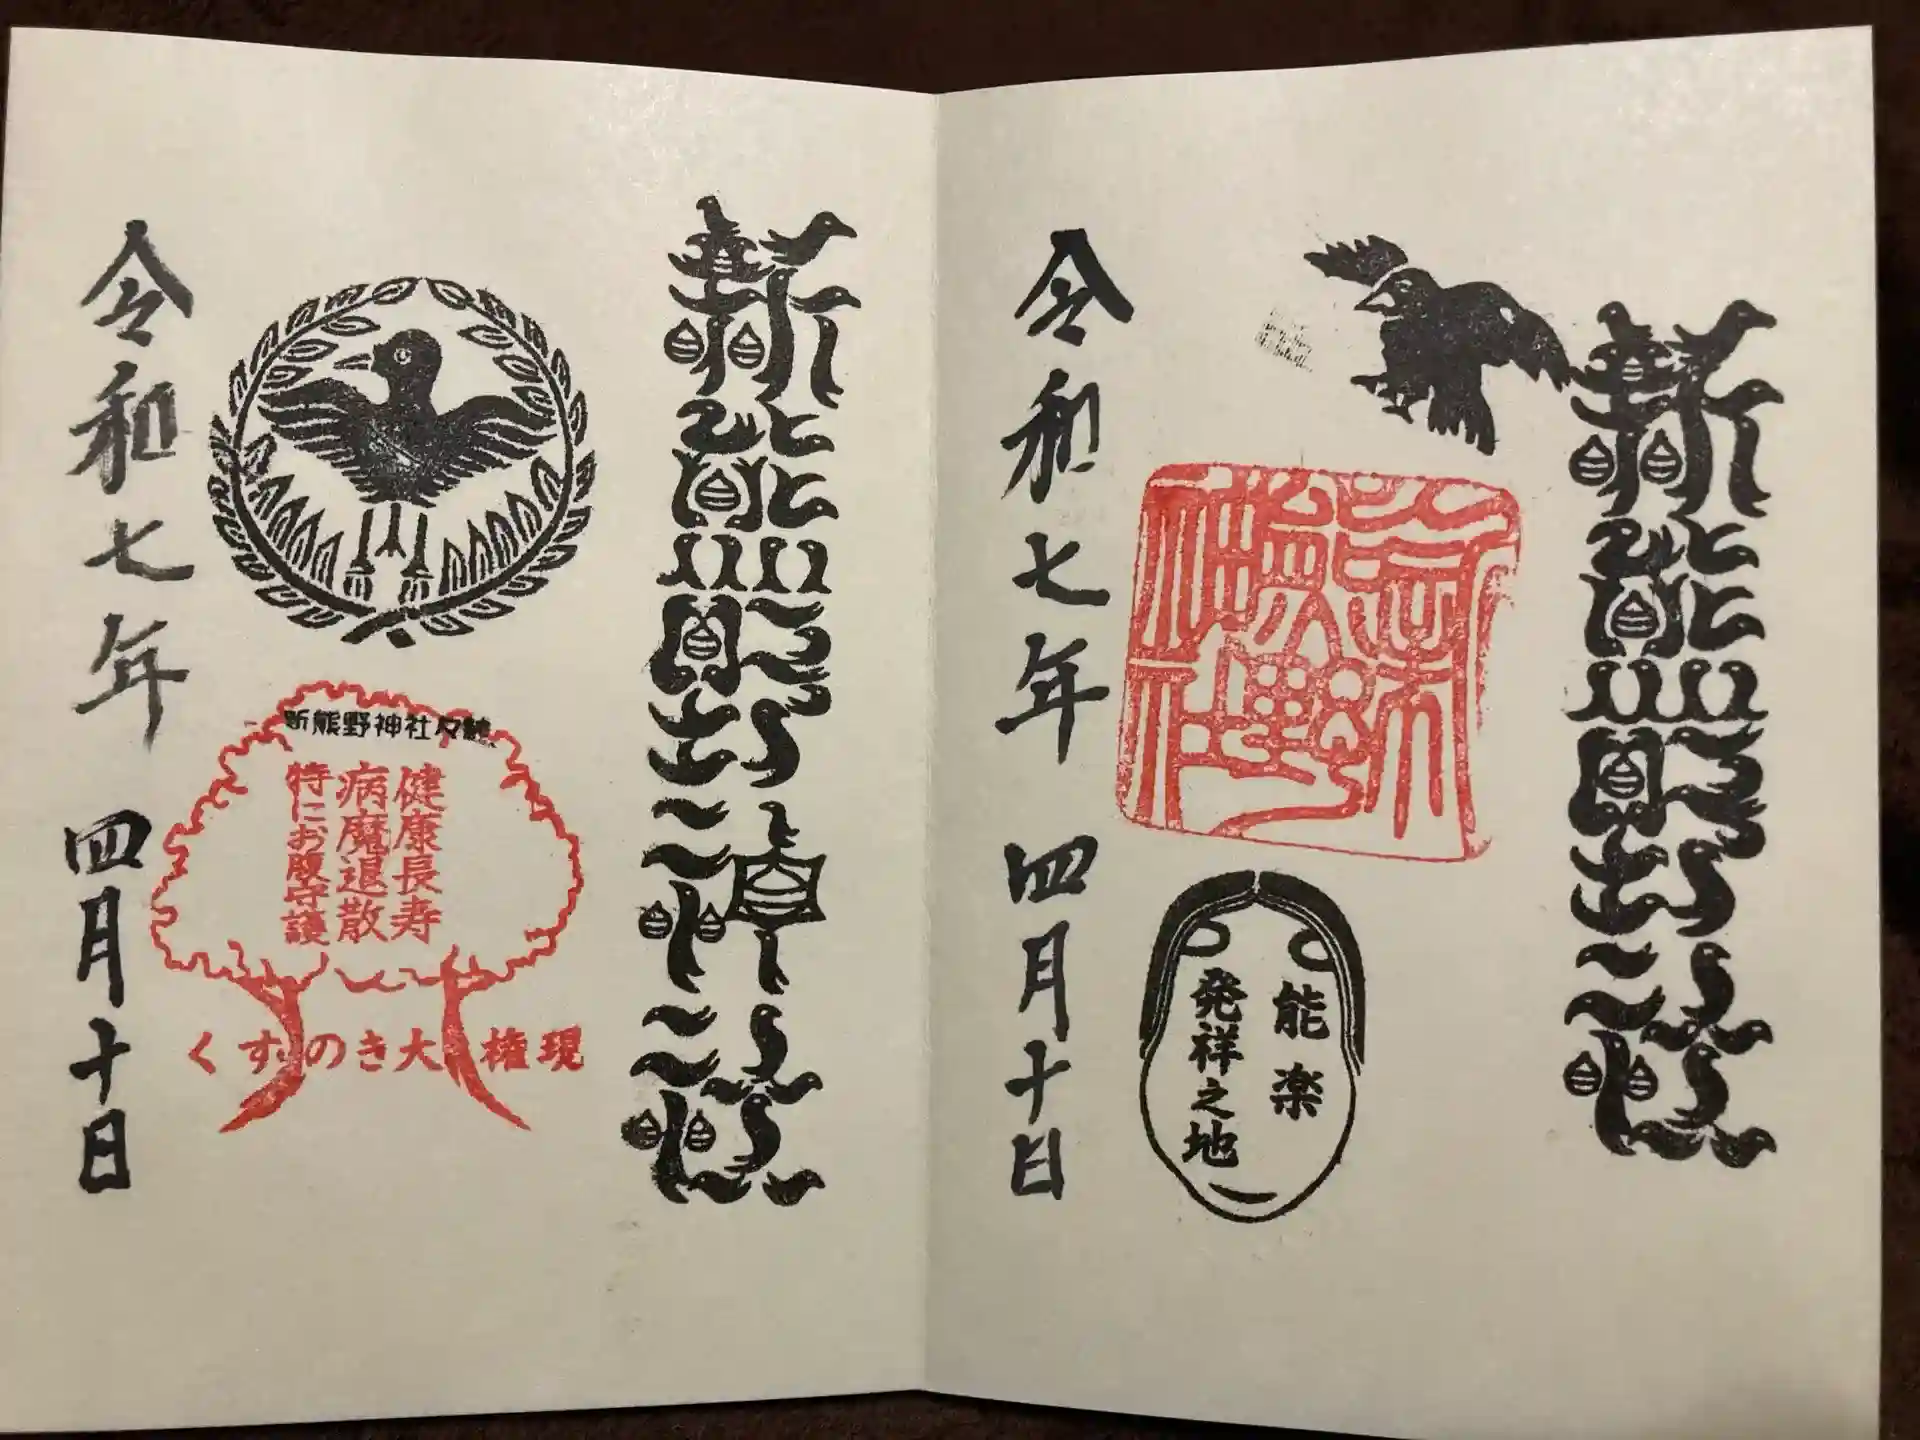 新熊野
能楽
発祥之地
令和七年四月十日
新熊野
新熊野神社
健康長寿
病魔退散
特にお腹守護
くすのき大権現
令和七年四月十日